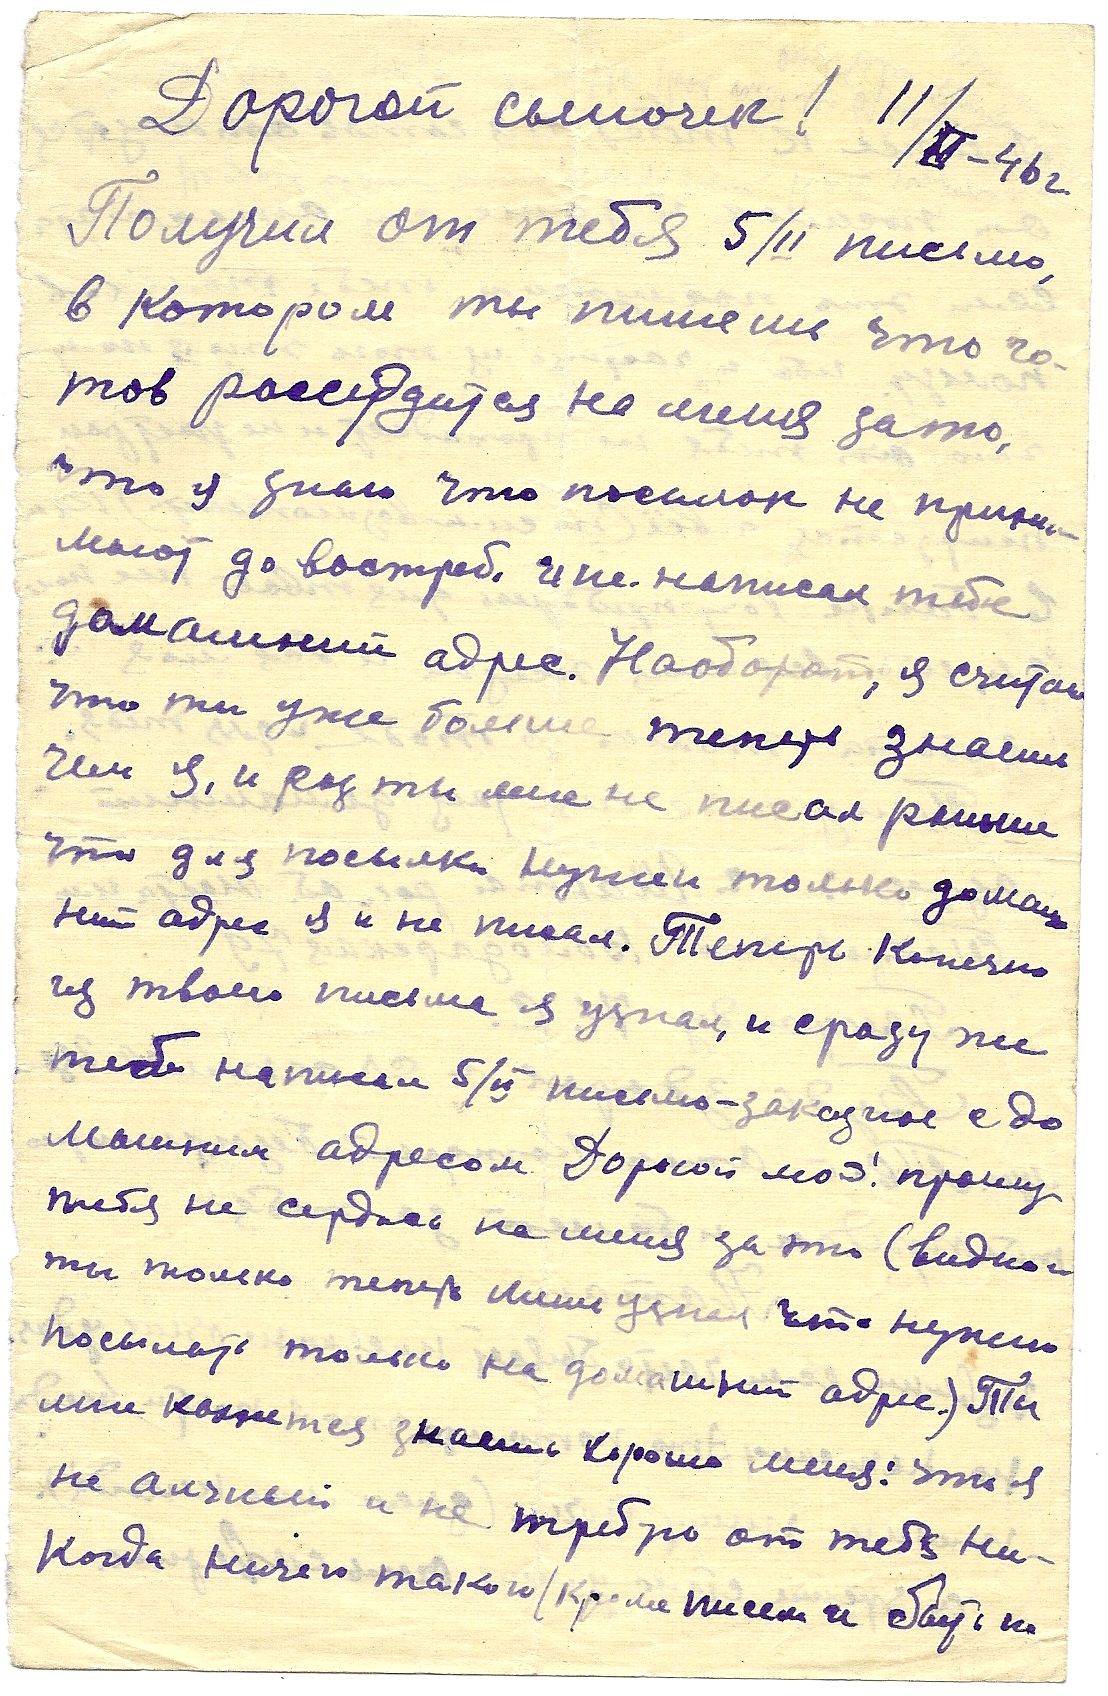 Дорогой сыночек! 11/II-46г.
Получил от тебя 5/II письмо,
в котором ты пишешь что го-
тов рассердится на меня за то,
что я знаю что посылок не прини-
мают до востреб. и не написал тебе
домашний адрес. Наоборот, я считаю
что ты уже больше теперь знаешь
чем я, и раз ты мне не писал раньше
что для посылки нужен только домаш
ний адрес я и не писал. Теперь конечно
из твоего письма я узнал, и сразу же
тебе написал 5/II письмо-заказное с до
машним адресом Дорогой мой! прошу
тебя не сердись на меня за это (видно и
ты только теперь лишь узнал что нужно
посылать только на домашний адрес.) Ты
мне кажется знаешь хорошо меня: что я
не алчный и не требую от тебя ни-
когда ничего такого (кроме писем и